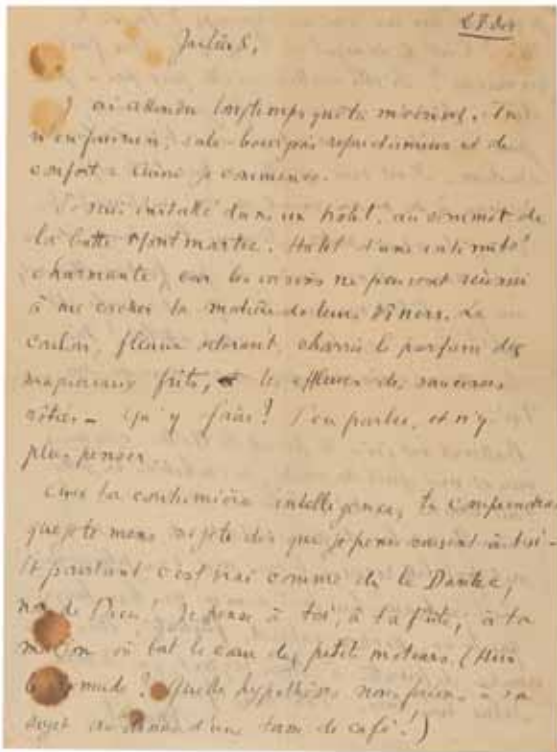 27 Dec
Jules S.
J'ai attendu longtemps que tu m'écrives. Tu
n'en fais rien, sale bourgeois et de
confort. Alors je commence.
Je suis installé dans un hôtel, au sommet de
la butte Montmartre. Hôtel d'une intimité
charmante, car les voisins ne peuvent réussir
à me cacher la matière de leurs dîners. Le
couloir, fleuve odorant, charrie le parfum des
maquereaux frits, les effluves des saucisses
rôties - Qu'y faire? T'en parler, et n'y
plus penser
Avec ta coutumière intelligence, tu comprendras
que je te mens si je te dis que je pense souvent à toi -
Et pourtant c'est vrai comme dit le Dantec,
nom de Dieu! Je pense à toi, à ta flûte, à ta
maison où bat le cœur des petits moteurs. (Hein
le monde? Quelle hypothèse nous fusions à son
sujet au-dessus d'une tasse de café!)